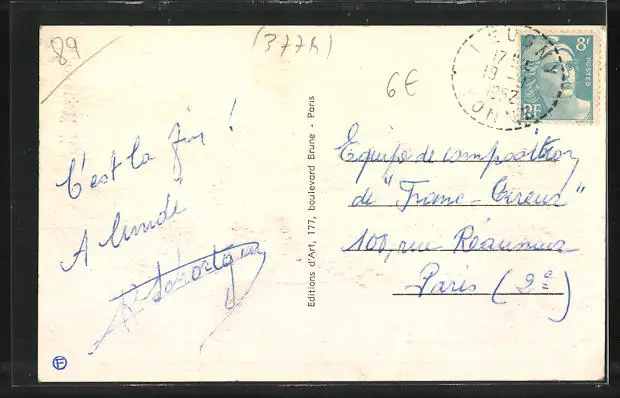 89
(377h)
6€
LEUGNY
17 H
19
1952
YONNE
8F
POSTES
RF
C'est la fin !
A lundi
Equipe de composition
de "Franc-Tireur"
100, rue Réaumur
Paris (2e)
Editions d'Art, 177, boulevard Brune - Paris
F